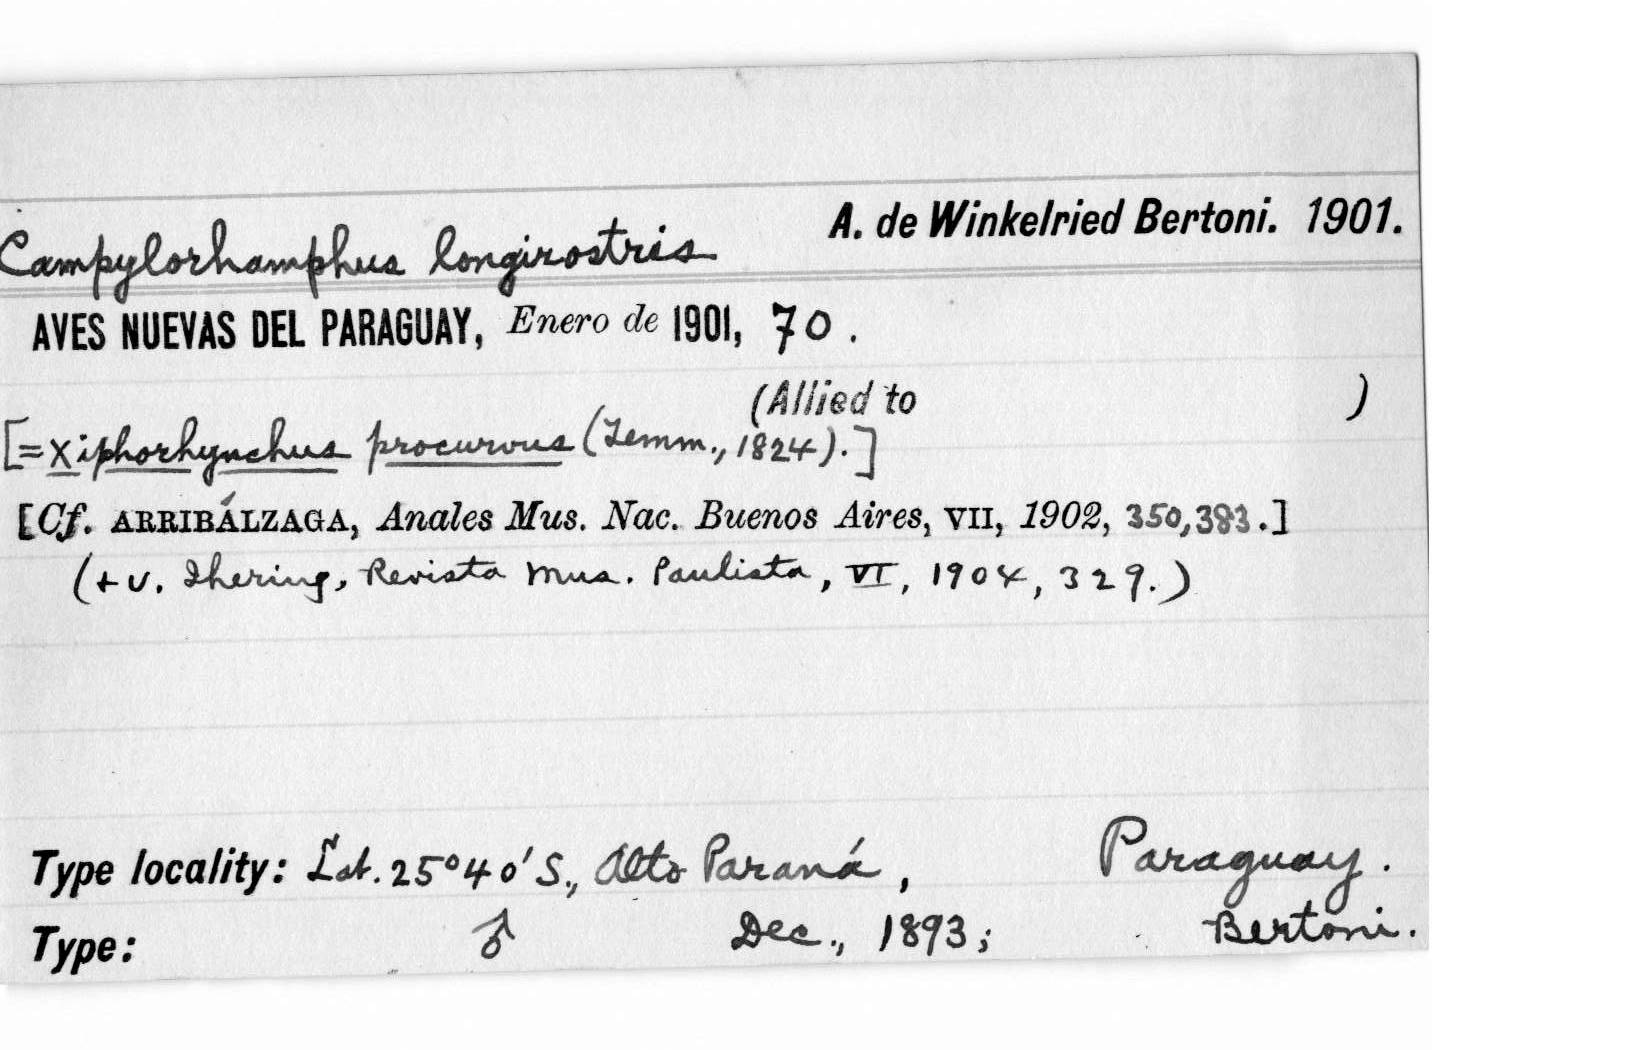 A. de Winkelried Bertoni. 1901.
Campylorhamphus longirostris
AVES NUEVAS DEL PARAGUAY, Enero de 1901, 70.
(Allied to )
[=Xiphorhynchus procurvus (Temm., 1824).]
[Cf. ARRIBÁLZAGA, Anales Mus. Nac. Buenos Aires, VII, 1902, 350,383.]
(+ v. Ihering, Revista Mus. Paulista, VI, 1904, 329.)
Type locality: Lat. 25°40'S., Alto Paraná, Paraguay.
Type: ♂ Dec., 1893; Bertoni.